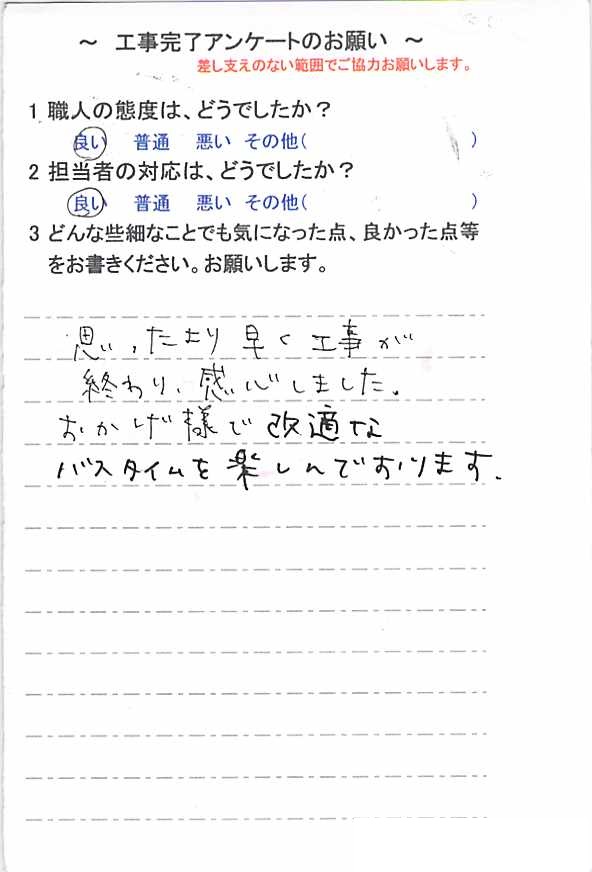 ～ 工事完了アンケートのお願い ～
差し支えのない範囲でご協力お願いします。
1 職人の態度は、どうでしたか？
良い 普通 悪い その他( )
2 担当者の対応は、どうでしたか？
良い 普通 悪い その他( )
3 どんな些細なことでも気になった点、良かった点等
をお書きください。お願いします。
思ったより早く工事が
終わり、感心しました。
おかげ様で改適な
バスタイムを楽しんでおります。